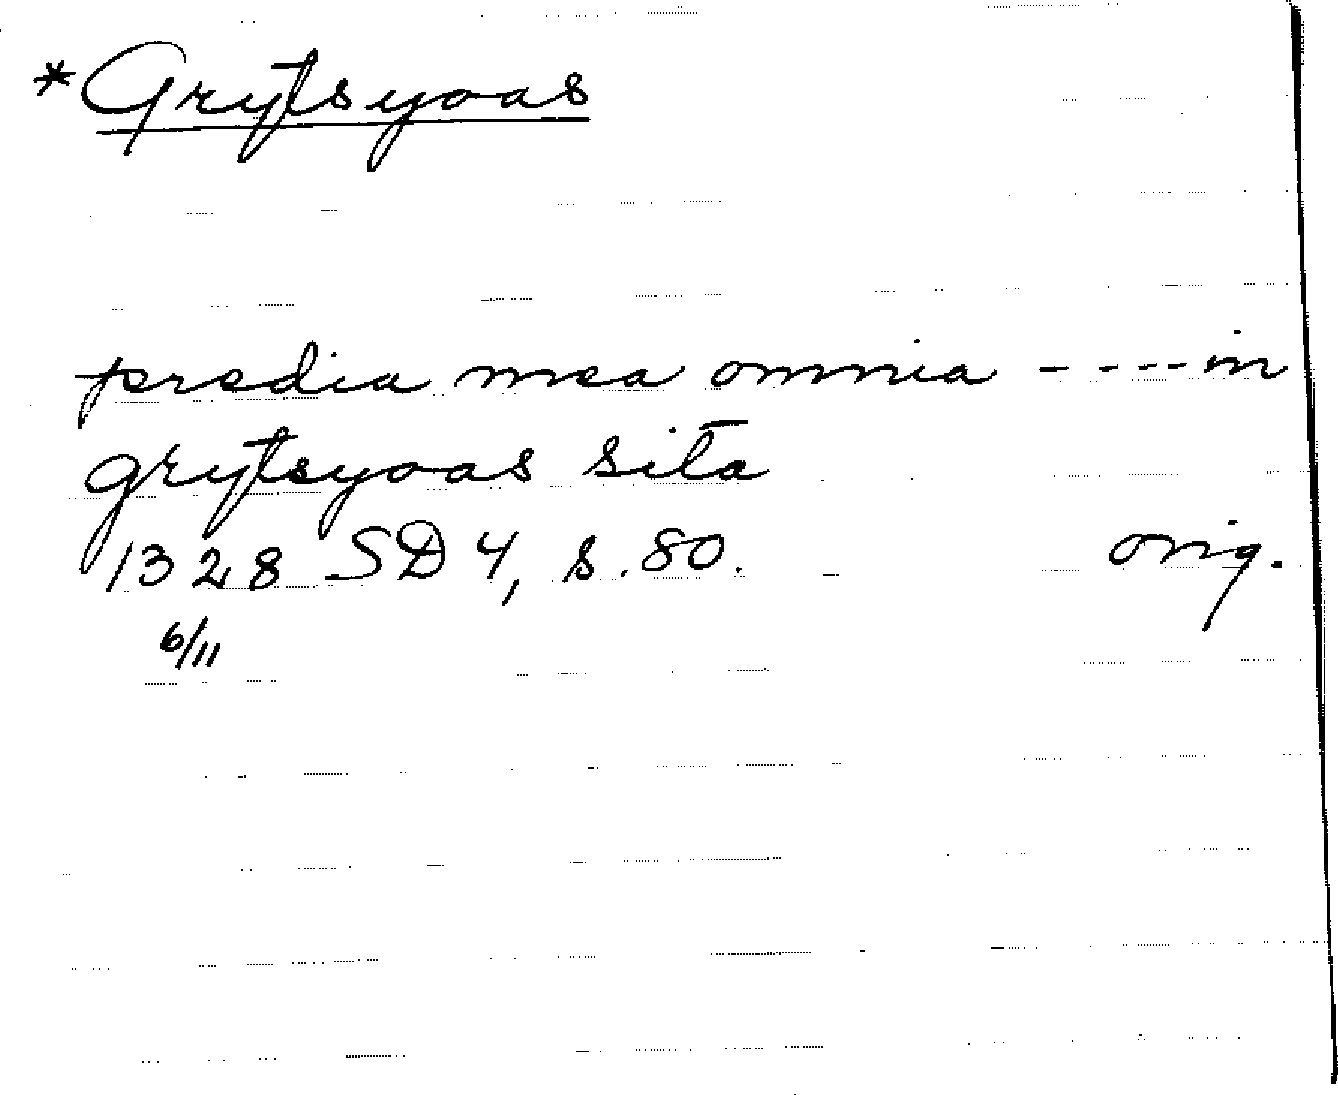 *Grytsyoas
predia mea omnia - - - - in
grytsyoas sita
1328 SD 4, s. 80. orig.
6/11